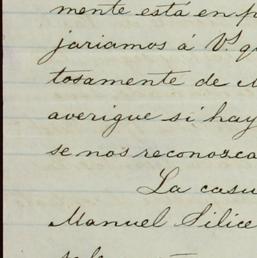 mente está en p
jariamos á V.s q
tosamente de
averigue si hay
se nos reconozca
La casu
Manuel Silice